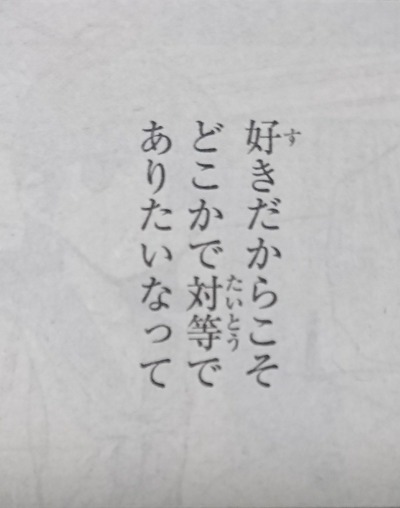 好きだからこそ
どこかで対等で
ありたいなって
す
たいとう